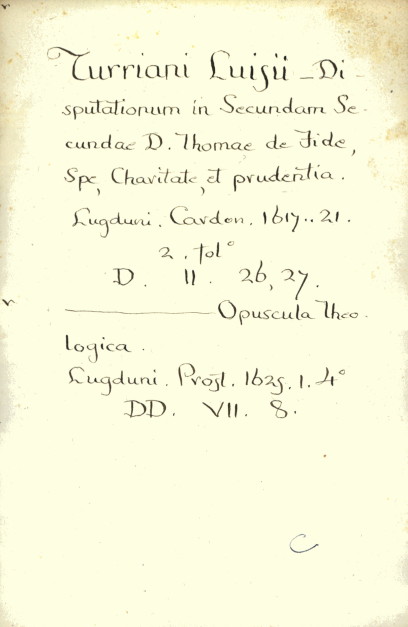 Turriani Luisii - Di-
sputationum in Secundam Se-
cundae D. Thomae de Fide,
Spe, Charitate, et prudentia.
Lugduni. Cardon. 1617.. 21.
2. fol°
D. II. 26, 27.
———— Opuscula Theo-
logica.
Lugduni. Prost. 1625. 1. 4°
DD. VII. 8.
C